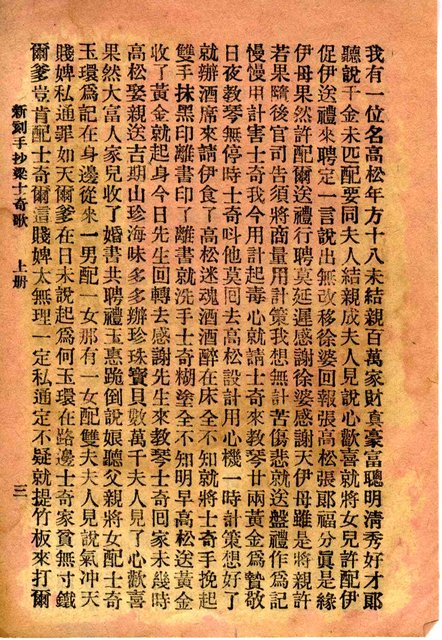 我有一位名高松年方十八未結親百萬家財真豪富聰明清秀好才郎
聽說千金未匹配要同夫人結親成夫人見說心歡喜就將女兒許配伊
促伊送禮來聘定一言說出無改移徐婆回報張高松張郎福分眞是緣
伊母果然許配爾送禮行聘莫延遲感謝徐婆感謝天伊母雖是將親許
若果隨後官司告須將商量用計策我想無計苦傷悲就送盤禮作為記
慢慢用計害士奇我今用計起毒心就請士奇來教琴廿兩黃金爲贄敬
日夜教琴無停時士奇呌他莫回去高松設計用心機一時計策想好了
就辦酒席來請伊食了高松迷魂酒酒醉在床全不知就將士奇手挽起
雙手抹黑印離書印了離書就洗手士奇糊塗全不知明早高松送黃金
收了黃金就起身今日先生回轉去感謝先生來教琴士奇回家未幾時
高松娶親送吉期山珍海味多多辦珍珠寶貝數萬千夫人見了心歡喜
果然大富人家兒收了婚書共聘禮玉惠跪倒說娘聽父親將女配士奇
玉環爲記在身邊從來一男配一女那有一女配雙夫夫人見說氣冲天
賤婢私通罪如天爾爹在日未說起爲何玉環在路邊士奇家貧無寸鐵
爾爹豈肯配士奇爾這賤婢太無理一定私通定不疑就提竹板來打爾
新刻手抄梁士奇歌 上册 三